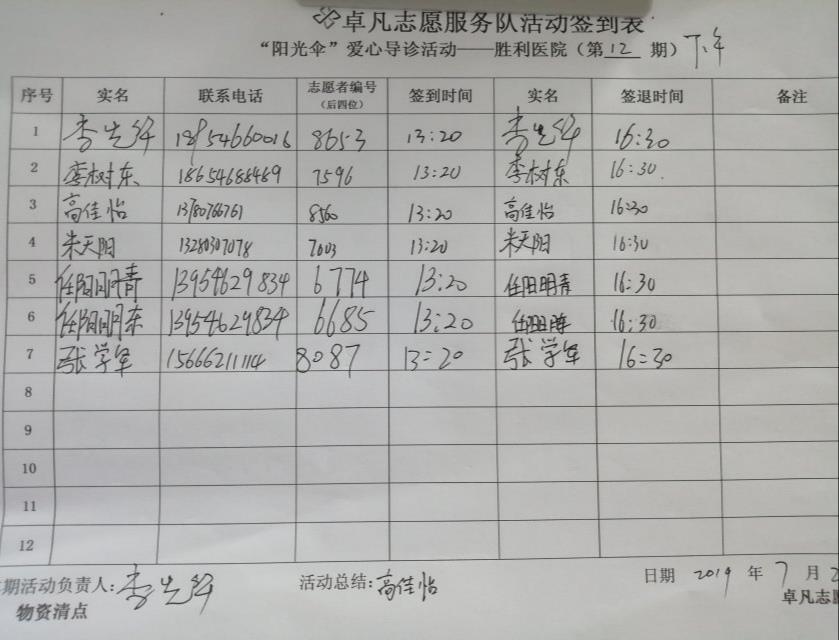 卓凡志愿服务队活动签到表
“阳光伞”爱心导诊活动——胜利医院（第12期）下午
序号 实名 联系电话 志愿者编号（后四位） 签到时间 实名 签退时间 备注
1 李 18954660016 8653 13:20 李 16:30
2 李树东 18654688489 7596 13:20 李树东 16:30.
3 高佳怡 13780766761 8560 13:20 高佳怡 16:30
4 朱天阳 13280307078 7003 13:20 朱天阳 16:30
5 任阳明青 13954629834 6774 13:20 任阳明青 16:30
6 任阳明东 13954629834 6685 13:20 任阳 16:30
7 张学军 15666211114 8087 13:20 张学军 16:30
8
9
10
11
12
期活动负责人：李 活动总结：高佳怡 日期 2019 年 7 月 2
物资清点 卓凡志愿